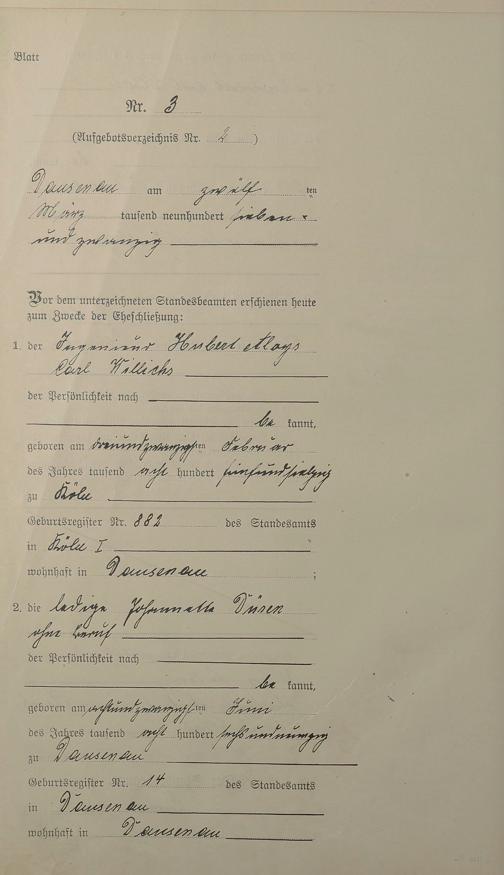 Blatt
Nr. 3
(Aufgebotsverzeichnis Nr. 2 )
Dausenau am zwölf ten
März tausend neunhundert sieben-
und zwanzig
Vor dem unterzeichneten Standesbeamten erschienen heute
zum Zwecke der Eheschließung:
1. der Ingenieur Hubert Aloys
Carl Willichs
der Persönlichkeit nach
be kannt,
geboren am dreiundzwanzigsten Februar
des Jahres tausend acht hundert
zu Köln
Geburtsregister Nr. 882 des Standesamts
in Köln I
wohnhaft in Dausenau ;
2. die ledige Johannette Düsen
ohne Beruf
der Persönlichkeit nach
be kannt,
geboren am achtundzwanzigsten Juni
des Jahres tausend acht hundert sechsundneunzig
zu Dausenau
Geburtsregister Nr. 14 des Standesamts
in Dausenau
wohnhaft in Dausenau